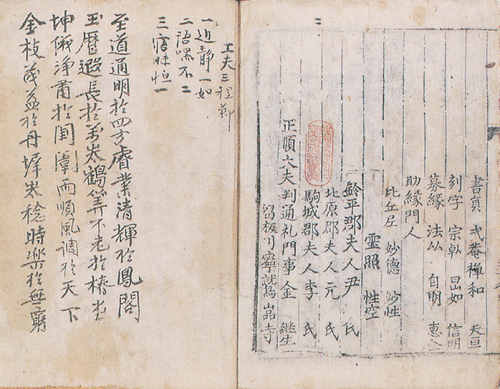 書員 弌菴禪和 天亘
刻字 宗軋 旵如 信明
募緣 法 自明 惠
助緣門人
比丘尼 妙德 妙性
靈照 性空
鈴平郡夫人尹氏
北原郡夫人元氏
駒城郡夫人李氏
正順大夫判通礼門事金継生
留板川寧鷲嵒寺
二
工夫三程節
一 静一如
二 語嘿不二
三 寤寐恒一
至道通明於四方睿業清輝於鳳閣
玉曆遐長於 鶴筭不老於椿
坤儀浄肅於閨闈雨順風調於天下
金枝茂盛於丹墀 稔時樂於無窮